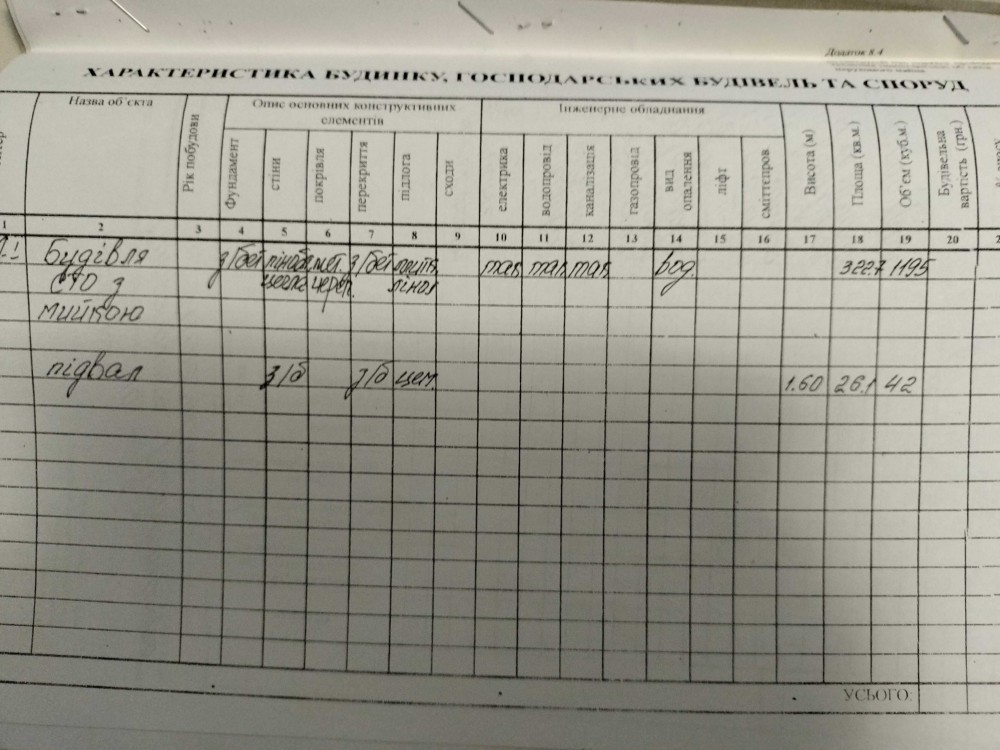 Додаток 8.4
ХАРАКТЕРИСТИКА БУДИНКУ, ГОСПОДАРСЬКИХ БУДІВЕЛЬ ТА СПОРУД
Назва об'єкта
Рік побудови
Опис основних конструктивних елементів
Інженерне обладнання
Висота (м)
Площа (кв.м.)
Об'єм (куб.м.)
Будівельна вартість (грн.)
Фундамент
стіни
покрівля
перекриття
підлога
сходи
електрика
водопровід
каналізація
газопровід
вид опалення
ліфт
сміттєпров.
1 2 3 4 5 6 7 8 9 10 11 12 13 14 15 16 17 18 19 20
Будівля з/бет піноб мет. з/бет плитк. так так так вод. 322.7 1195
СТО з цегла череп. лінол
мийкою
підвал з/б з/б цем. 1.60 26.1 42
УСЬОГО: